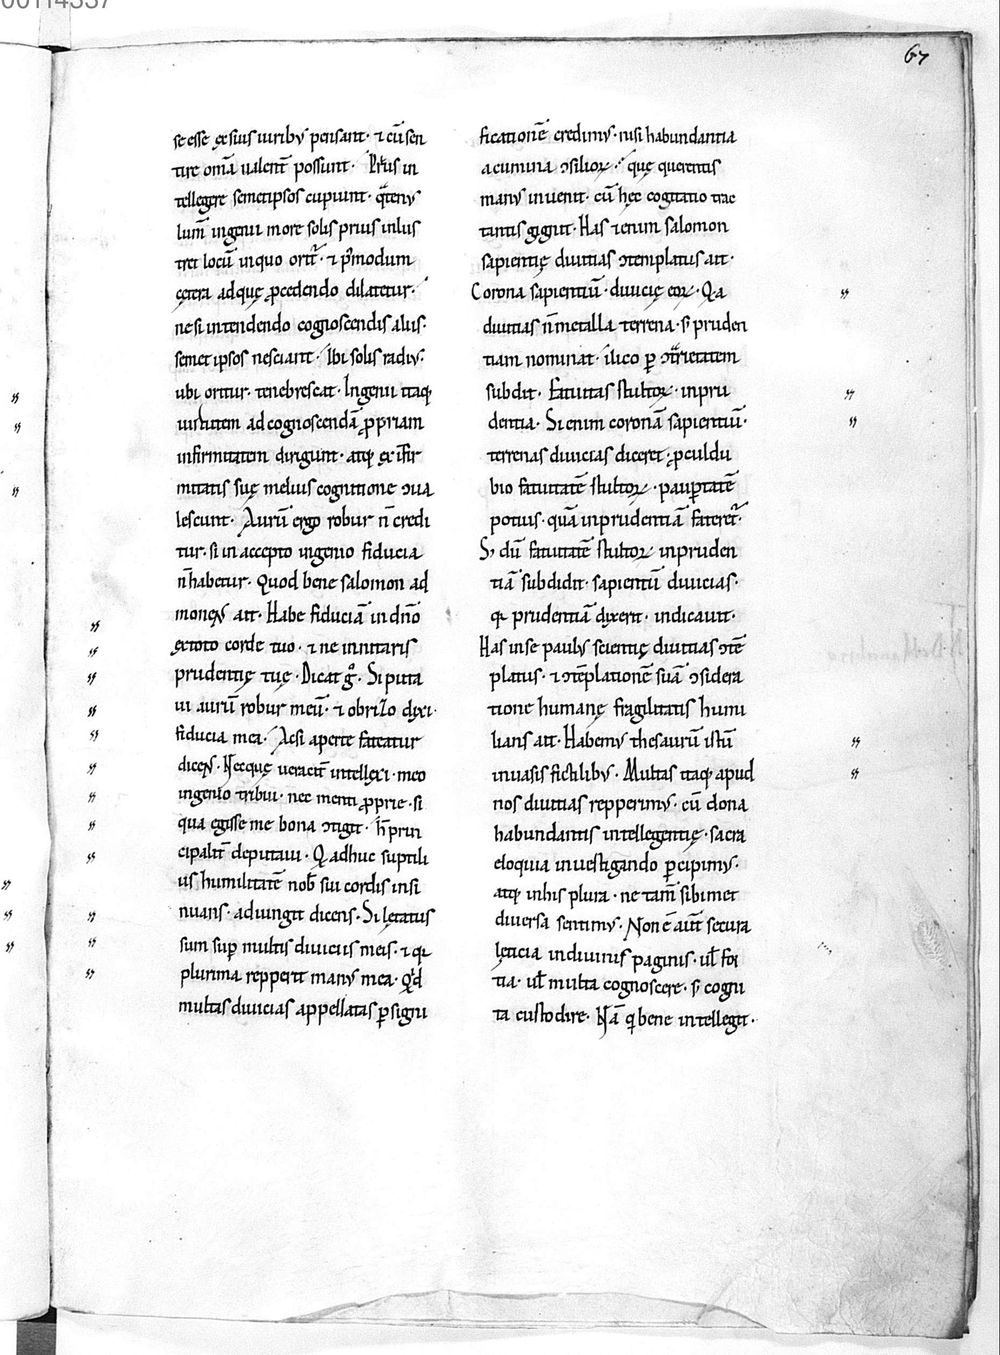 67
se esse ex suis uiribꝰ pensant· ⁊ cū sen
tire om̄a ualent̄ possunt· Priꝰ in
tellegere semetipsos cupiunt· q̈tenꝰ
lum̄ ingenii more solis prius inlus
tret locū in quo orit᷑· ⁊ p̄modum
cętera ad quę ꝓcedendo dilatetur·
ne si intendendo cognoscendis aliis·
semet ipsos nesciant· Ibi solis radiꝰ·
ubi oritur· tenebrescat· Ingenii itaq;
uirtutem ad cognoscendā ꝓpriam
infirmitatem dirigunt· atq; ex ifir
mitatis suę melius cognitione ↄua
lescunt· Aurū ergo robur n̄ credi
tur· si in accepto ingenio fiducia
n̄ habetur· Quod bene salomon ad
monens ait· Habe fiduciā in dn̄o
ex toto corde tuo· ⁊ ne innitaris
prudentię tuę· Dicat gͦ· Si puta
ui aurū robur meū· ⁊ obrizo dixi·
fiducia mea· Acsi aperte fateatur
dicens· Necque ueracit̄ intellexi· meo
ingenio tribui· nec menti ꝓprie· si
qua egisse me bona ↄtigit· h̄ prin
cipalit̄ deputaui· Q adhuc suptili
us humilitatē nob̄ sui cordis insi
nuans· adiungit dicens· Si lętatus
sum suꝑ multis diuiciis meis· ⁊ q;
plurima repperit manꝰ mea· Qd́
multas diuicias appellatas ꝑ signi
ficationē credimꝰ· nisi habundantia
acumina ↄsilioꝝ· quę querentis
manꝰ inuenit· cū hęc cogitatio trac
tantis gignit· Has etenim salomon
sapientię diuitias ↄtemplatus ait·
Corona sapientiū· diuicię eoꝝ· Q̇a
diuitias n̄ metalla terrena· s; pruden
tiam nominat· ilico ꝑ ↄtrarietatem
subdit· Fatuitas stultoꝝ· inpru
dentia· Si enim coronā sapientiū·
terrenas diuicias diceret· ꝓculdu
bio fatuitatē stultoꝝ· pauꝑtatē
potius· quā inprudentiā fateret᷑·
S; dū fatuitatē stultoꝝ inpruden
tiā subdidit· sapientiū diuicias·
q; prudentiā dixerit· indicauit·
Has in se paulꝰ scientię diuitias ↄtē
platus· ⁊ ↄtēplationē suā ↄsidera
tione humanę fragilitatis humi
lians ait· Habemꝰ thesaurū istū
in uasis fictilibꝰ· Multas itaq; apud
nos diuitias repperimꝰ· cū dona
habundantis intellegentię· sacra
eloquia inuestigando ꝑcipimꝰ·
atq; in his plura· ne tam̄ sibimet
diuersa sentimꝰ· Non ē aut̄ secura
lęticia in diuinis paginis· ul̄ for
tia· ul̄ multa cognoscere· s; cogni
ta custodire· Nā q̇ bene intellegit·